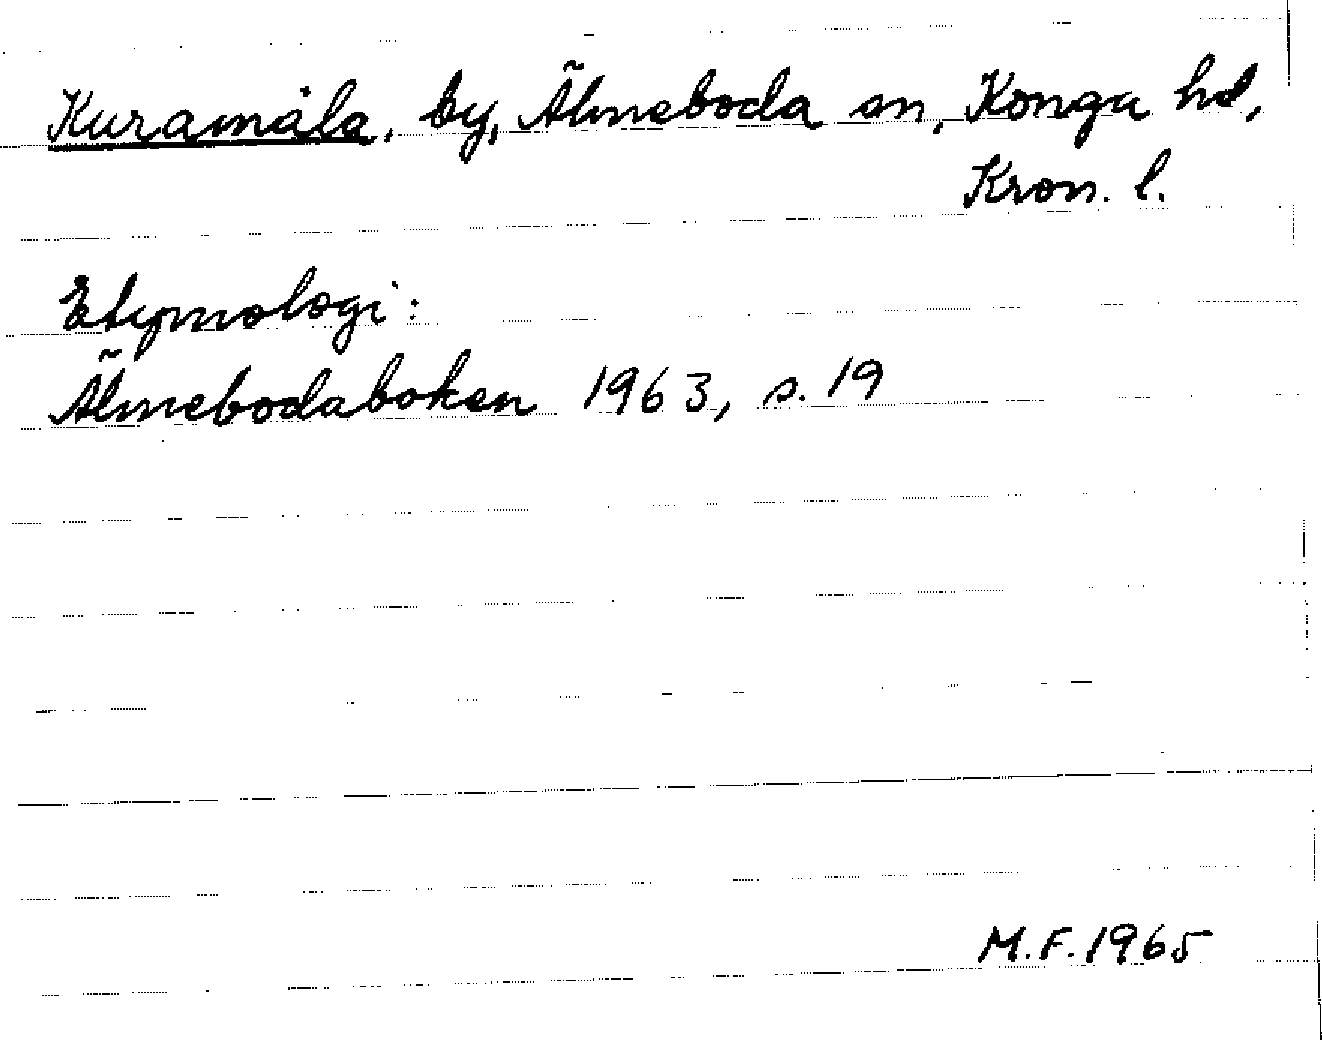 Kuramåla, by, Älmeboda sn, Konga hd,
Kron. l.
Etymologi:
Älmebodaboken 1963, s. 19
M.F. 1965